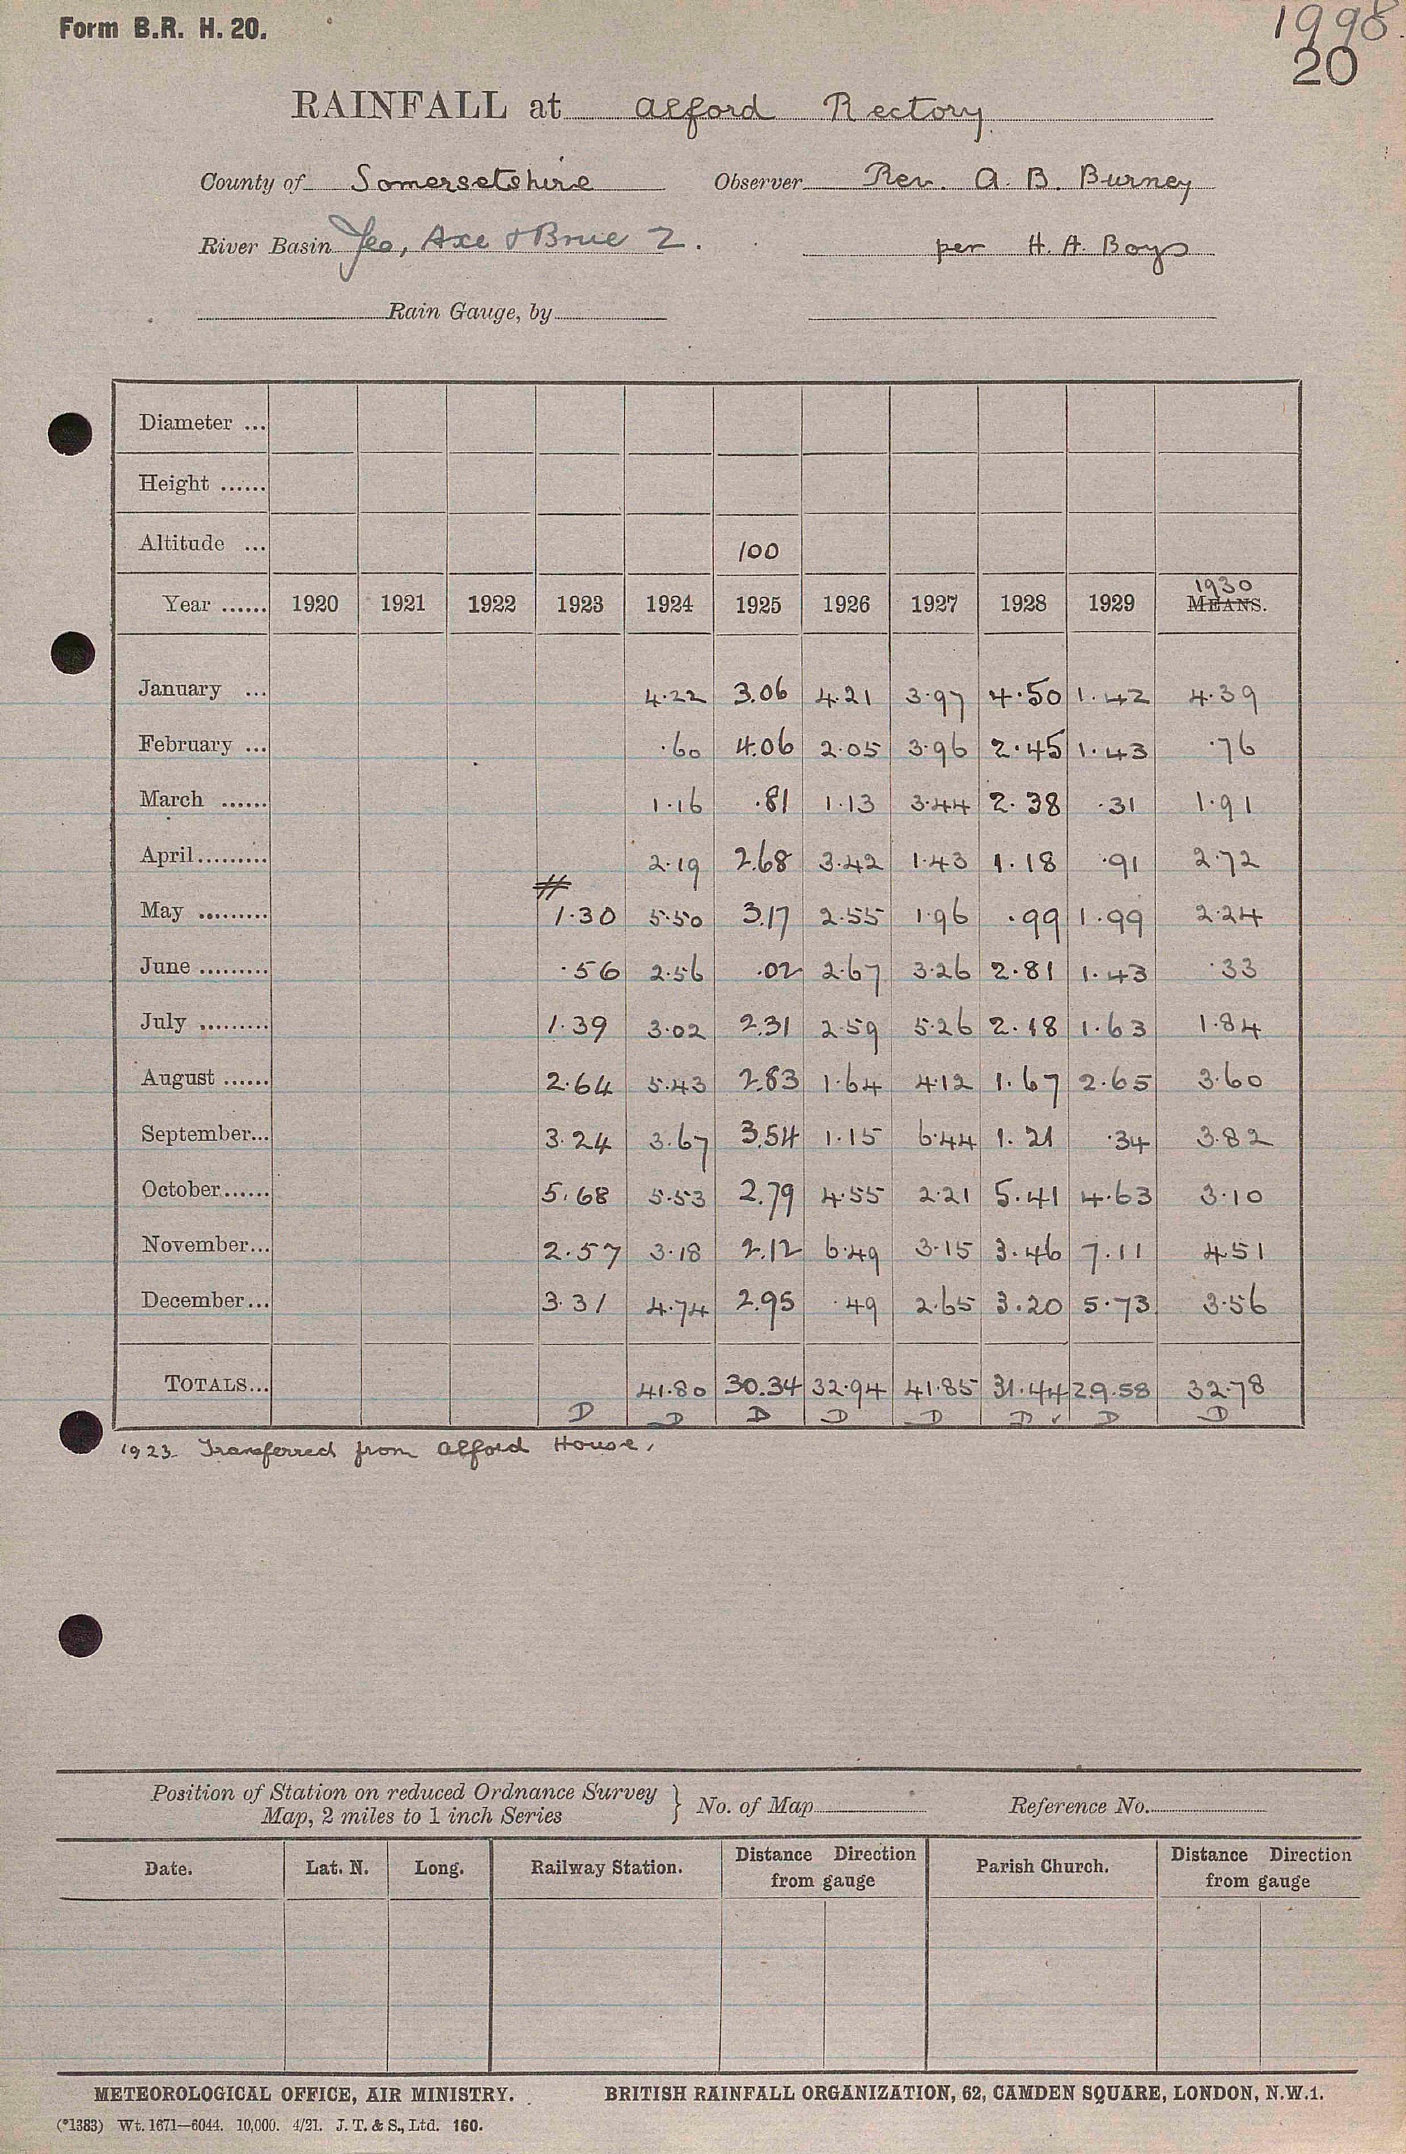 Form B.R. H. 20.
1998.
20
RAINFALL at Alford Rectory
County of Somersetshire Observer Rev. A. B. Burney
River Basin Yeo, Axe & Brue 2. per H. A. Boys
Rain Gauge, by
Diameter ...
Height ......
Altitude ... 100
1930
Year ...... 1920 1921 1922 1923 1924 1925 1926 1927 1928 1929 MEANS.
January ... 4.22 3.06 4.21 3.97 4.50 1.42 4.39
February ... .60 4.06 2.05 3.96 2.45 1.43 .76
March ...... 1.16 .81 1.13 3.44 2.38 .31 1.91
April ......... 2.19 2.68 3.42 1.43 1.18 .91 2.72
May ......... 1.30 5.50 3.17 2.55 1.96 .99 1.99 2.24
June ......... .56 2.56 .02 2.67 3.26 2.81 1.43 .33
July ......... 1.39 3.02 2.31 2.59 5.26 2.18 1.63 1.84
August ...... 2.64 5.43 2.83 1.64 4.12 1.67 2.65 3.60
September... 3.24 3.67 3.54 1.15 6.44 1.21 .34 3.82
October...... 5.68 5.53 2.79 4.55 2.21 5.41 4.63 3.10
November... 2.57 3.18 2.12 6.49 3.15 3.46 7.11 4.51
December... 3.31 4.74 2.95 .49 2.65 3.20 5.73 3.56
TOTALS... 41.80 30.34 32.94 41.85 31.44 29.58 32.78
D D D D D D ✓ D D
1923 Transferred from Alford House.
Position of Station on reduced Ordnance Survey
Map, 2 miles to 1 inch Series } No. of Map Reference No.
Date. Lat. N. Long. Railway Station. Distance Direction from gauge Parish Church. Distance Direction from gauge
METEOROLOGICAL OFFICE, AIR MINISTRY. BRITISH RAINFALL ORGANIZATION, 62, CAMDEN SQUARE, LONDON, N.W.1.
(*1383) Wt. 1671—6044. 10,000. 4/21. J. T. & S., Ltd. 160.